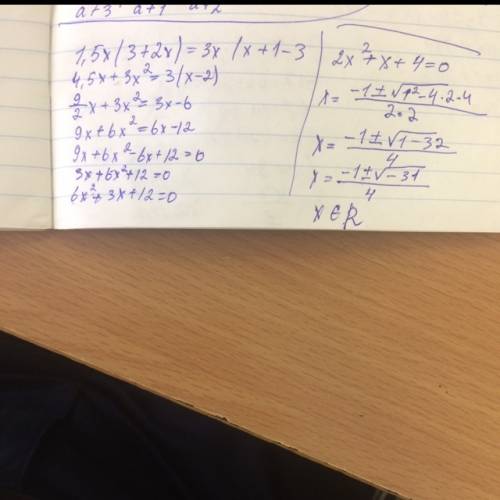 a+3 a+1 a+2
1,5x(3+2x)=3x(x+1-3
4,5x+3x²=3(x-2)
9/2x+3x²=3x-6
9x+6x²=6x-12
9x+6x²-6x+12=0
3x+6x²+12=0
6x²+3x+12=0
2x²+x+4=0
x=-1±√1²-4·2·4/2·2
x=-1±√1-32/4
x=-1±√-31/4
x∈R